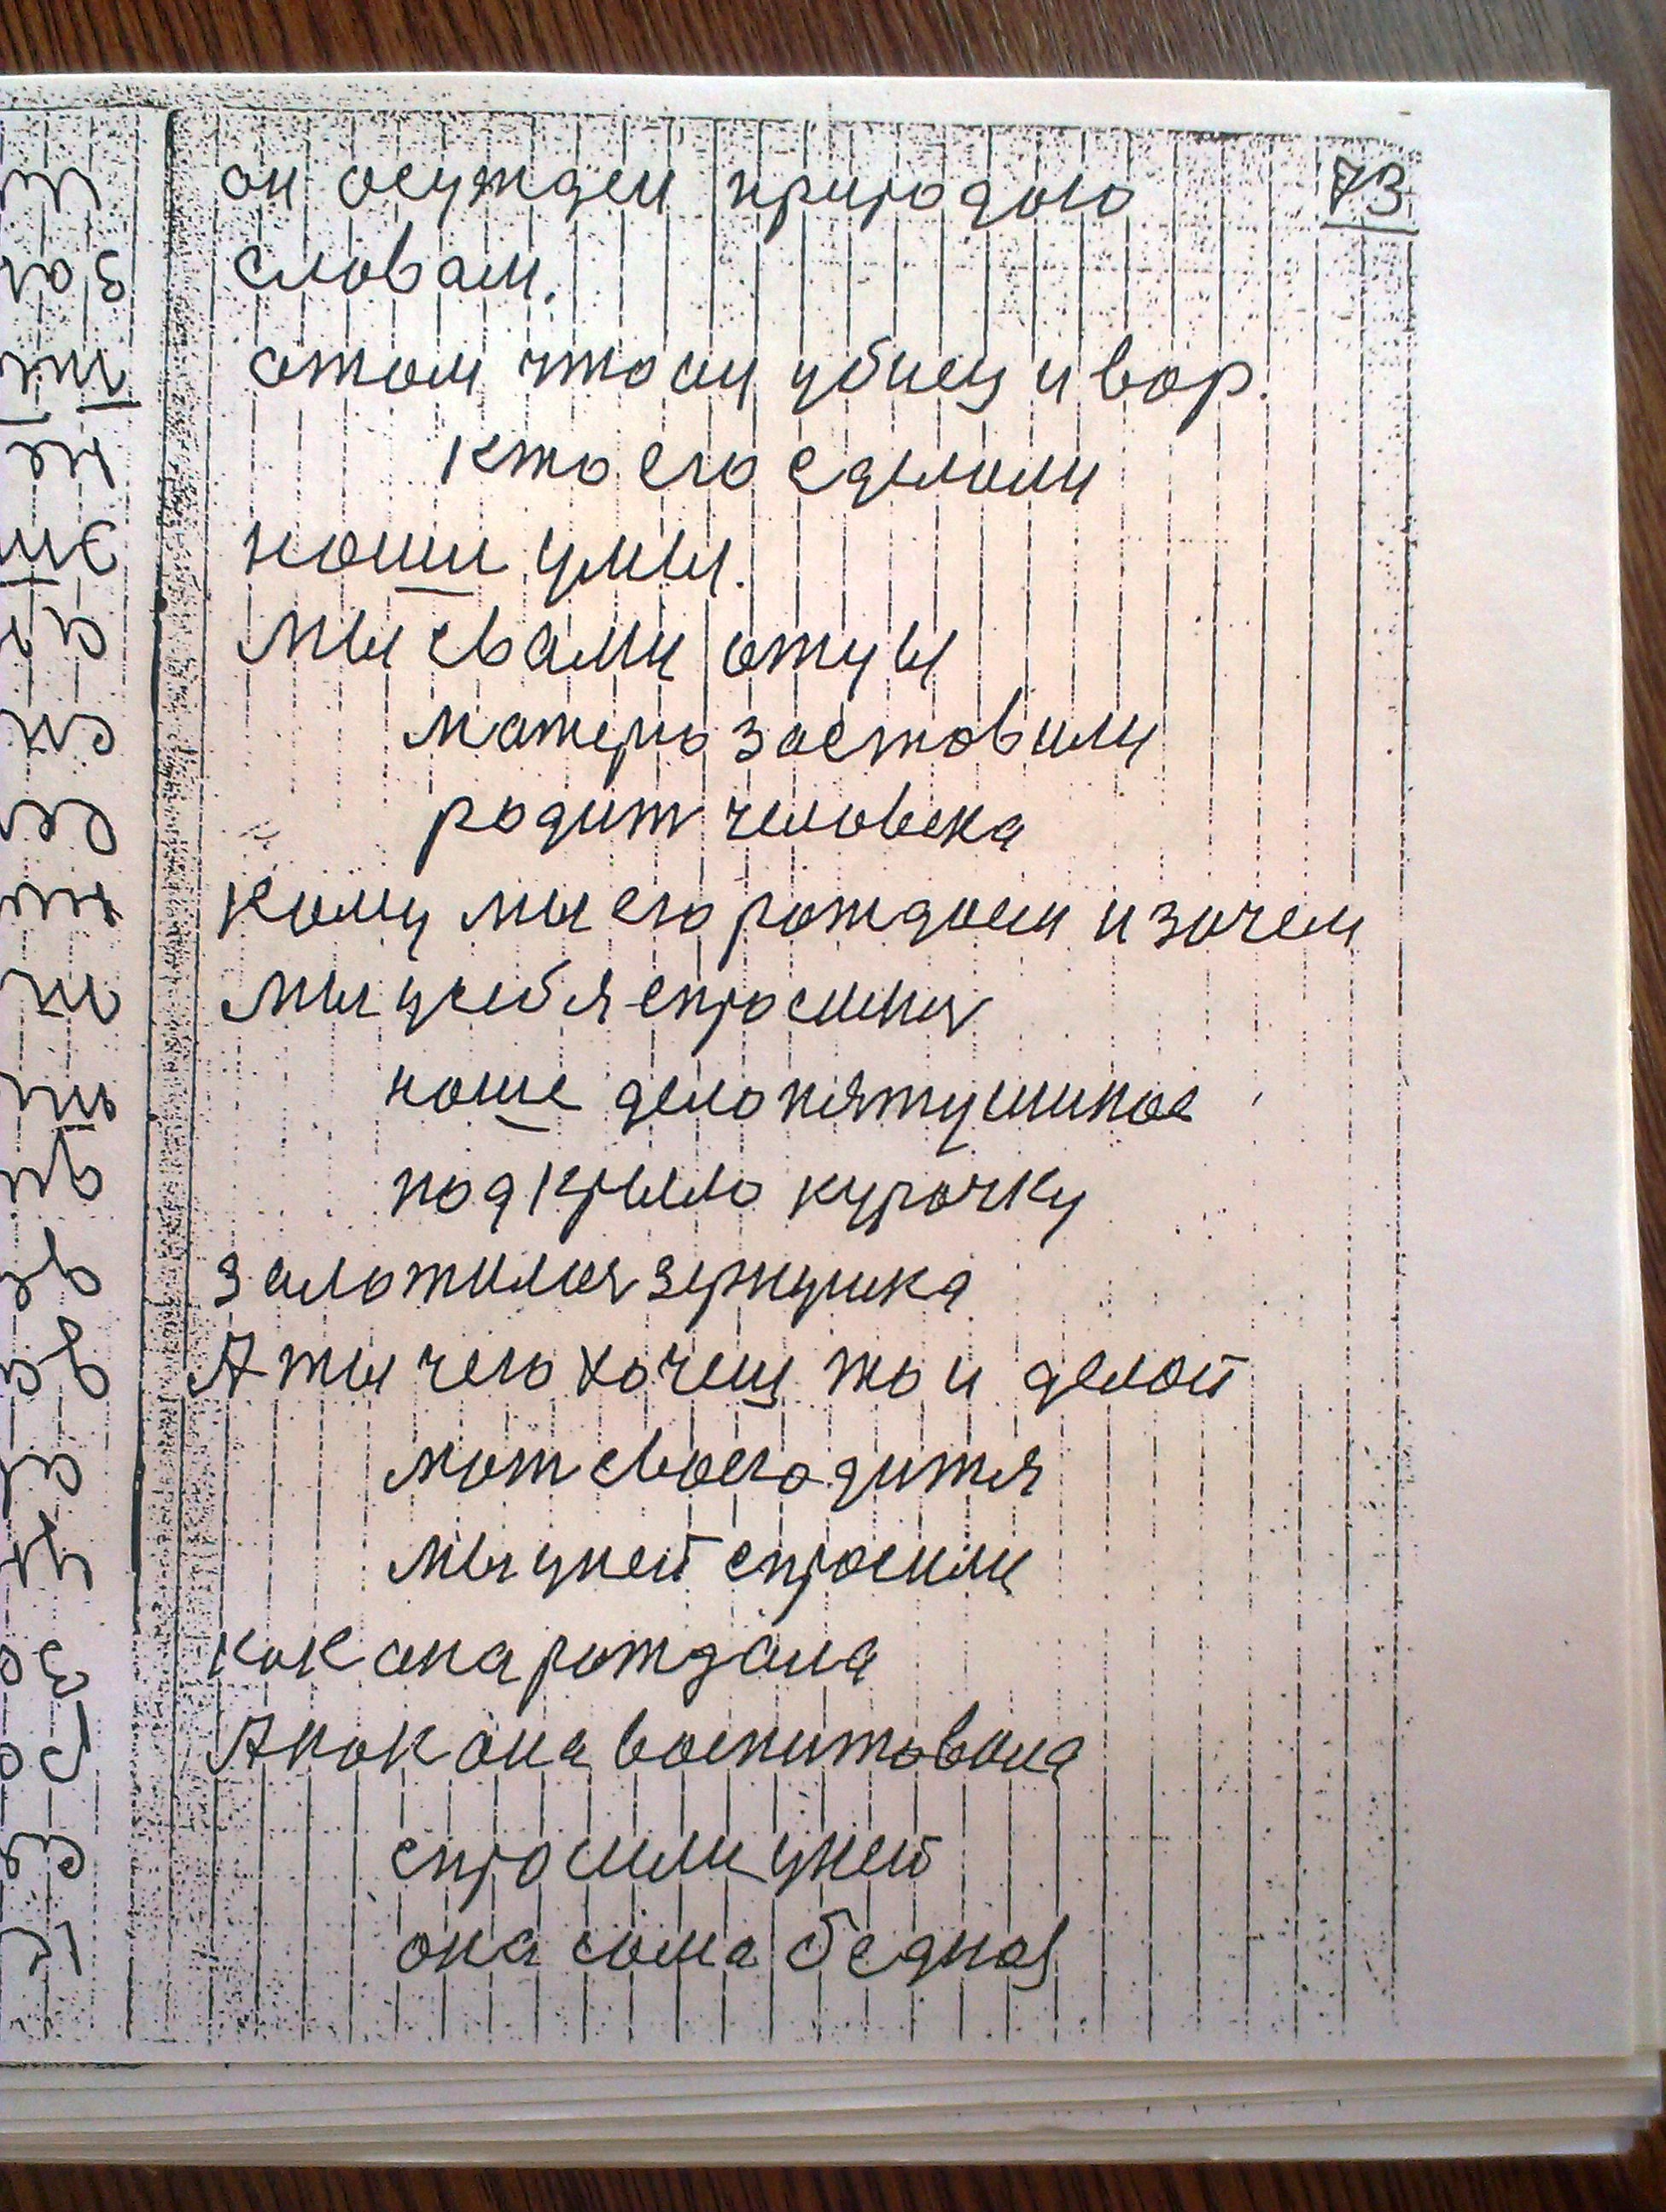 он осужден природою 73
словам.
отом что он убиец и вор.
Кто его сделали
наши умы.
Мы свами отцы
матерь заставили
родит человека
Кому мы его рождаем и зачем
мы усебя спросили
наше дело пятушиное
под крыло курочку
заложилося зернушка
А ты чего хочеш то и делай
мат своего дитя
мы уней спросили
как она рождала
А как она воспитовала
спросили уней
она сома бедная